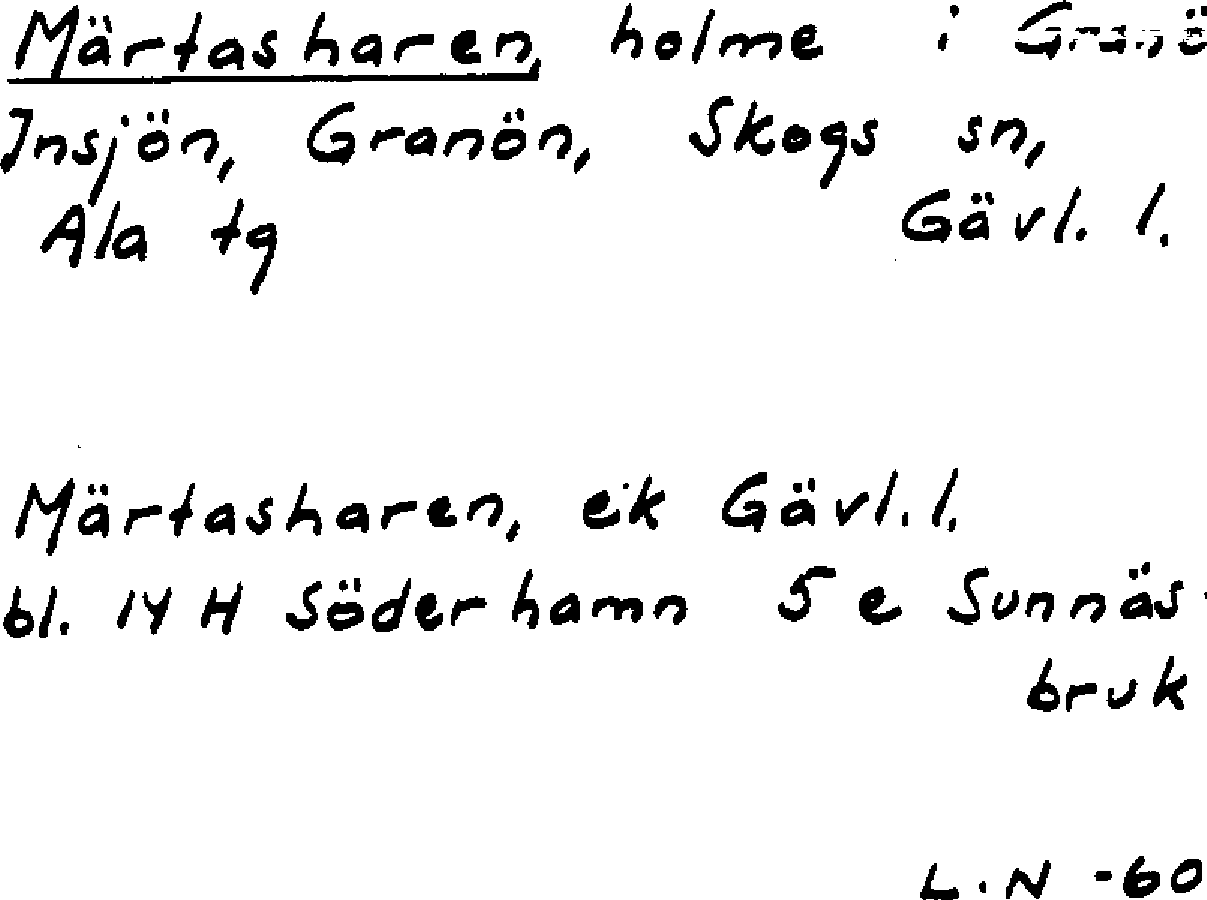 Märtasharen, holme i Granö
Insjön, Granön, Skogs sn,
Ala tg Gävl. l.
Märtasharen, ek Gävl. l.
bl. 14 H Söderhamn 5 e Sunnäs-
bruk
L.N -60